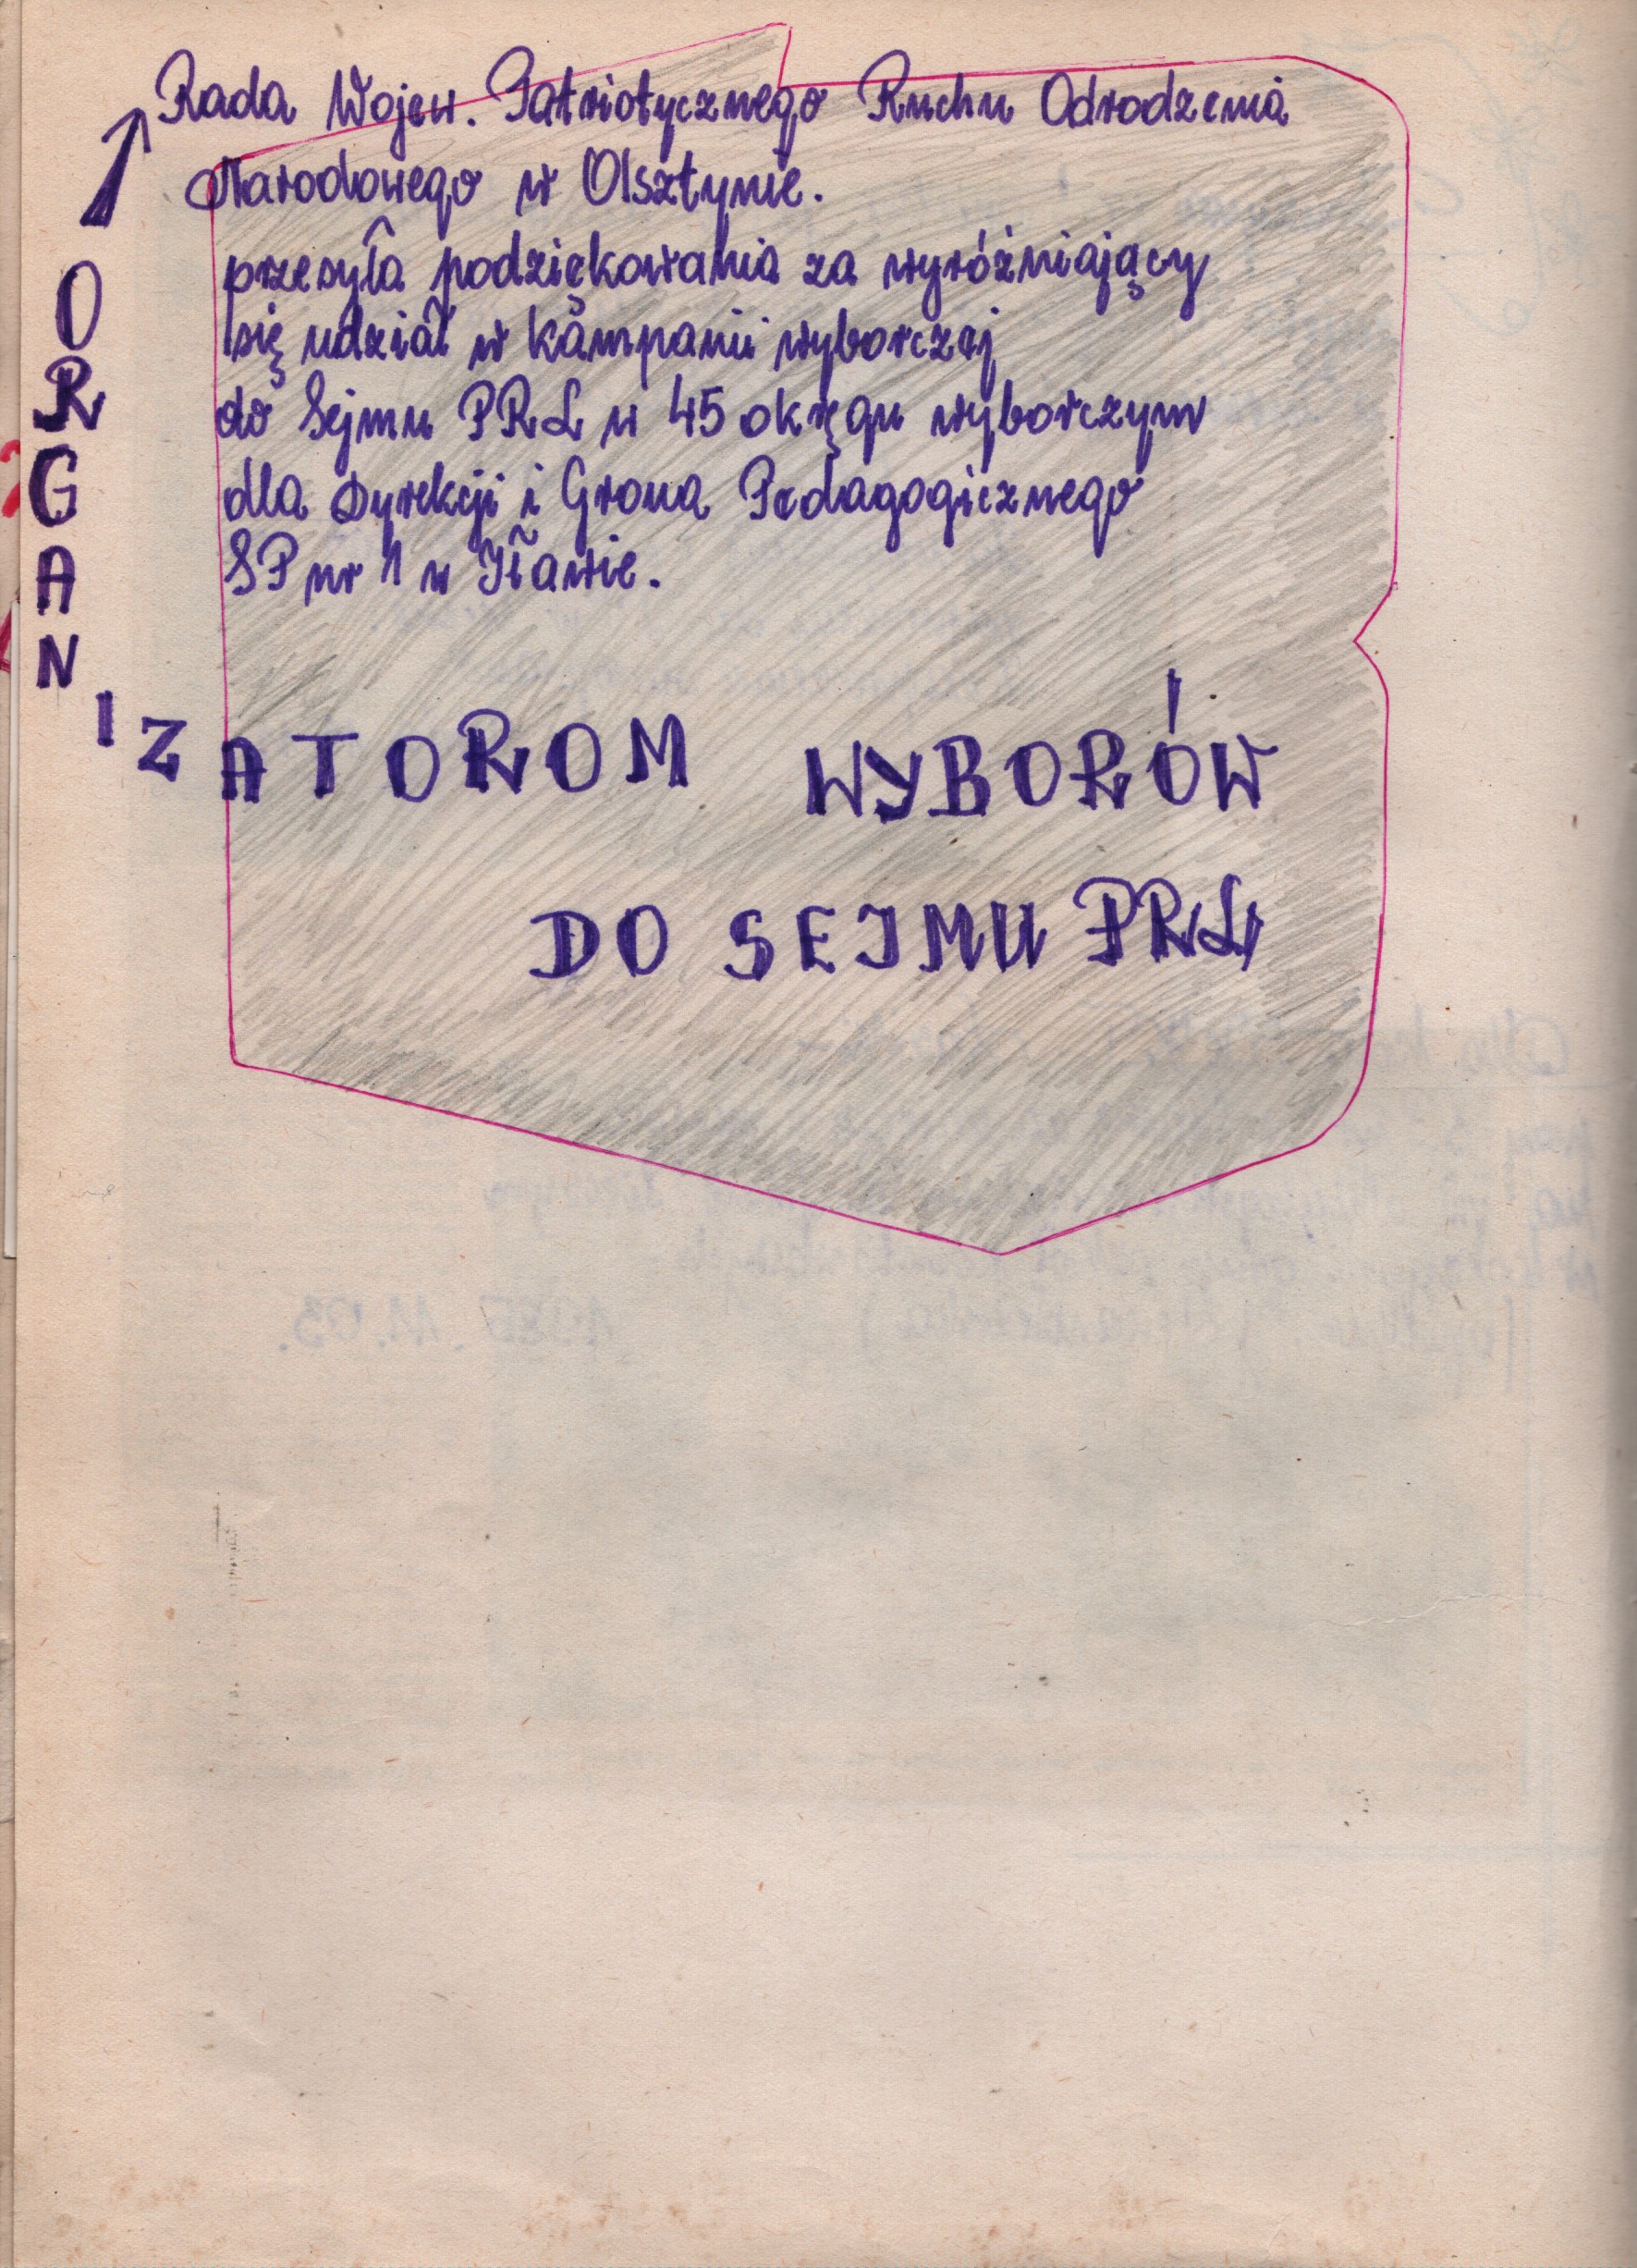 Rada Wojew. Patriotycznego Ruchu Odrodzenia
Narodowego w Olsztynie.
przesyła podziękowania za wyróżniający
się udział w kampanii wyborczej
do Sejmu PRL w 45 okręgu wyborczym
dla Dyrekcji i Grona Pedagogicznego
SP nr 1 w Iławie.
ORGANIZATOROM WYBORÓW
DO SEJMU PRL
1985.11.03.